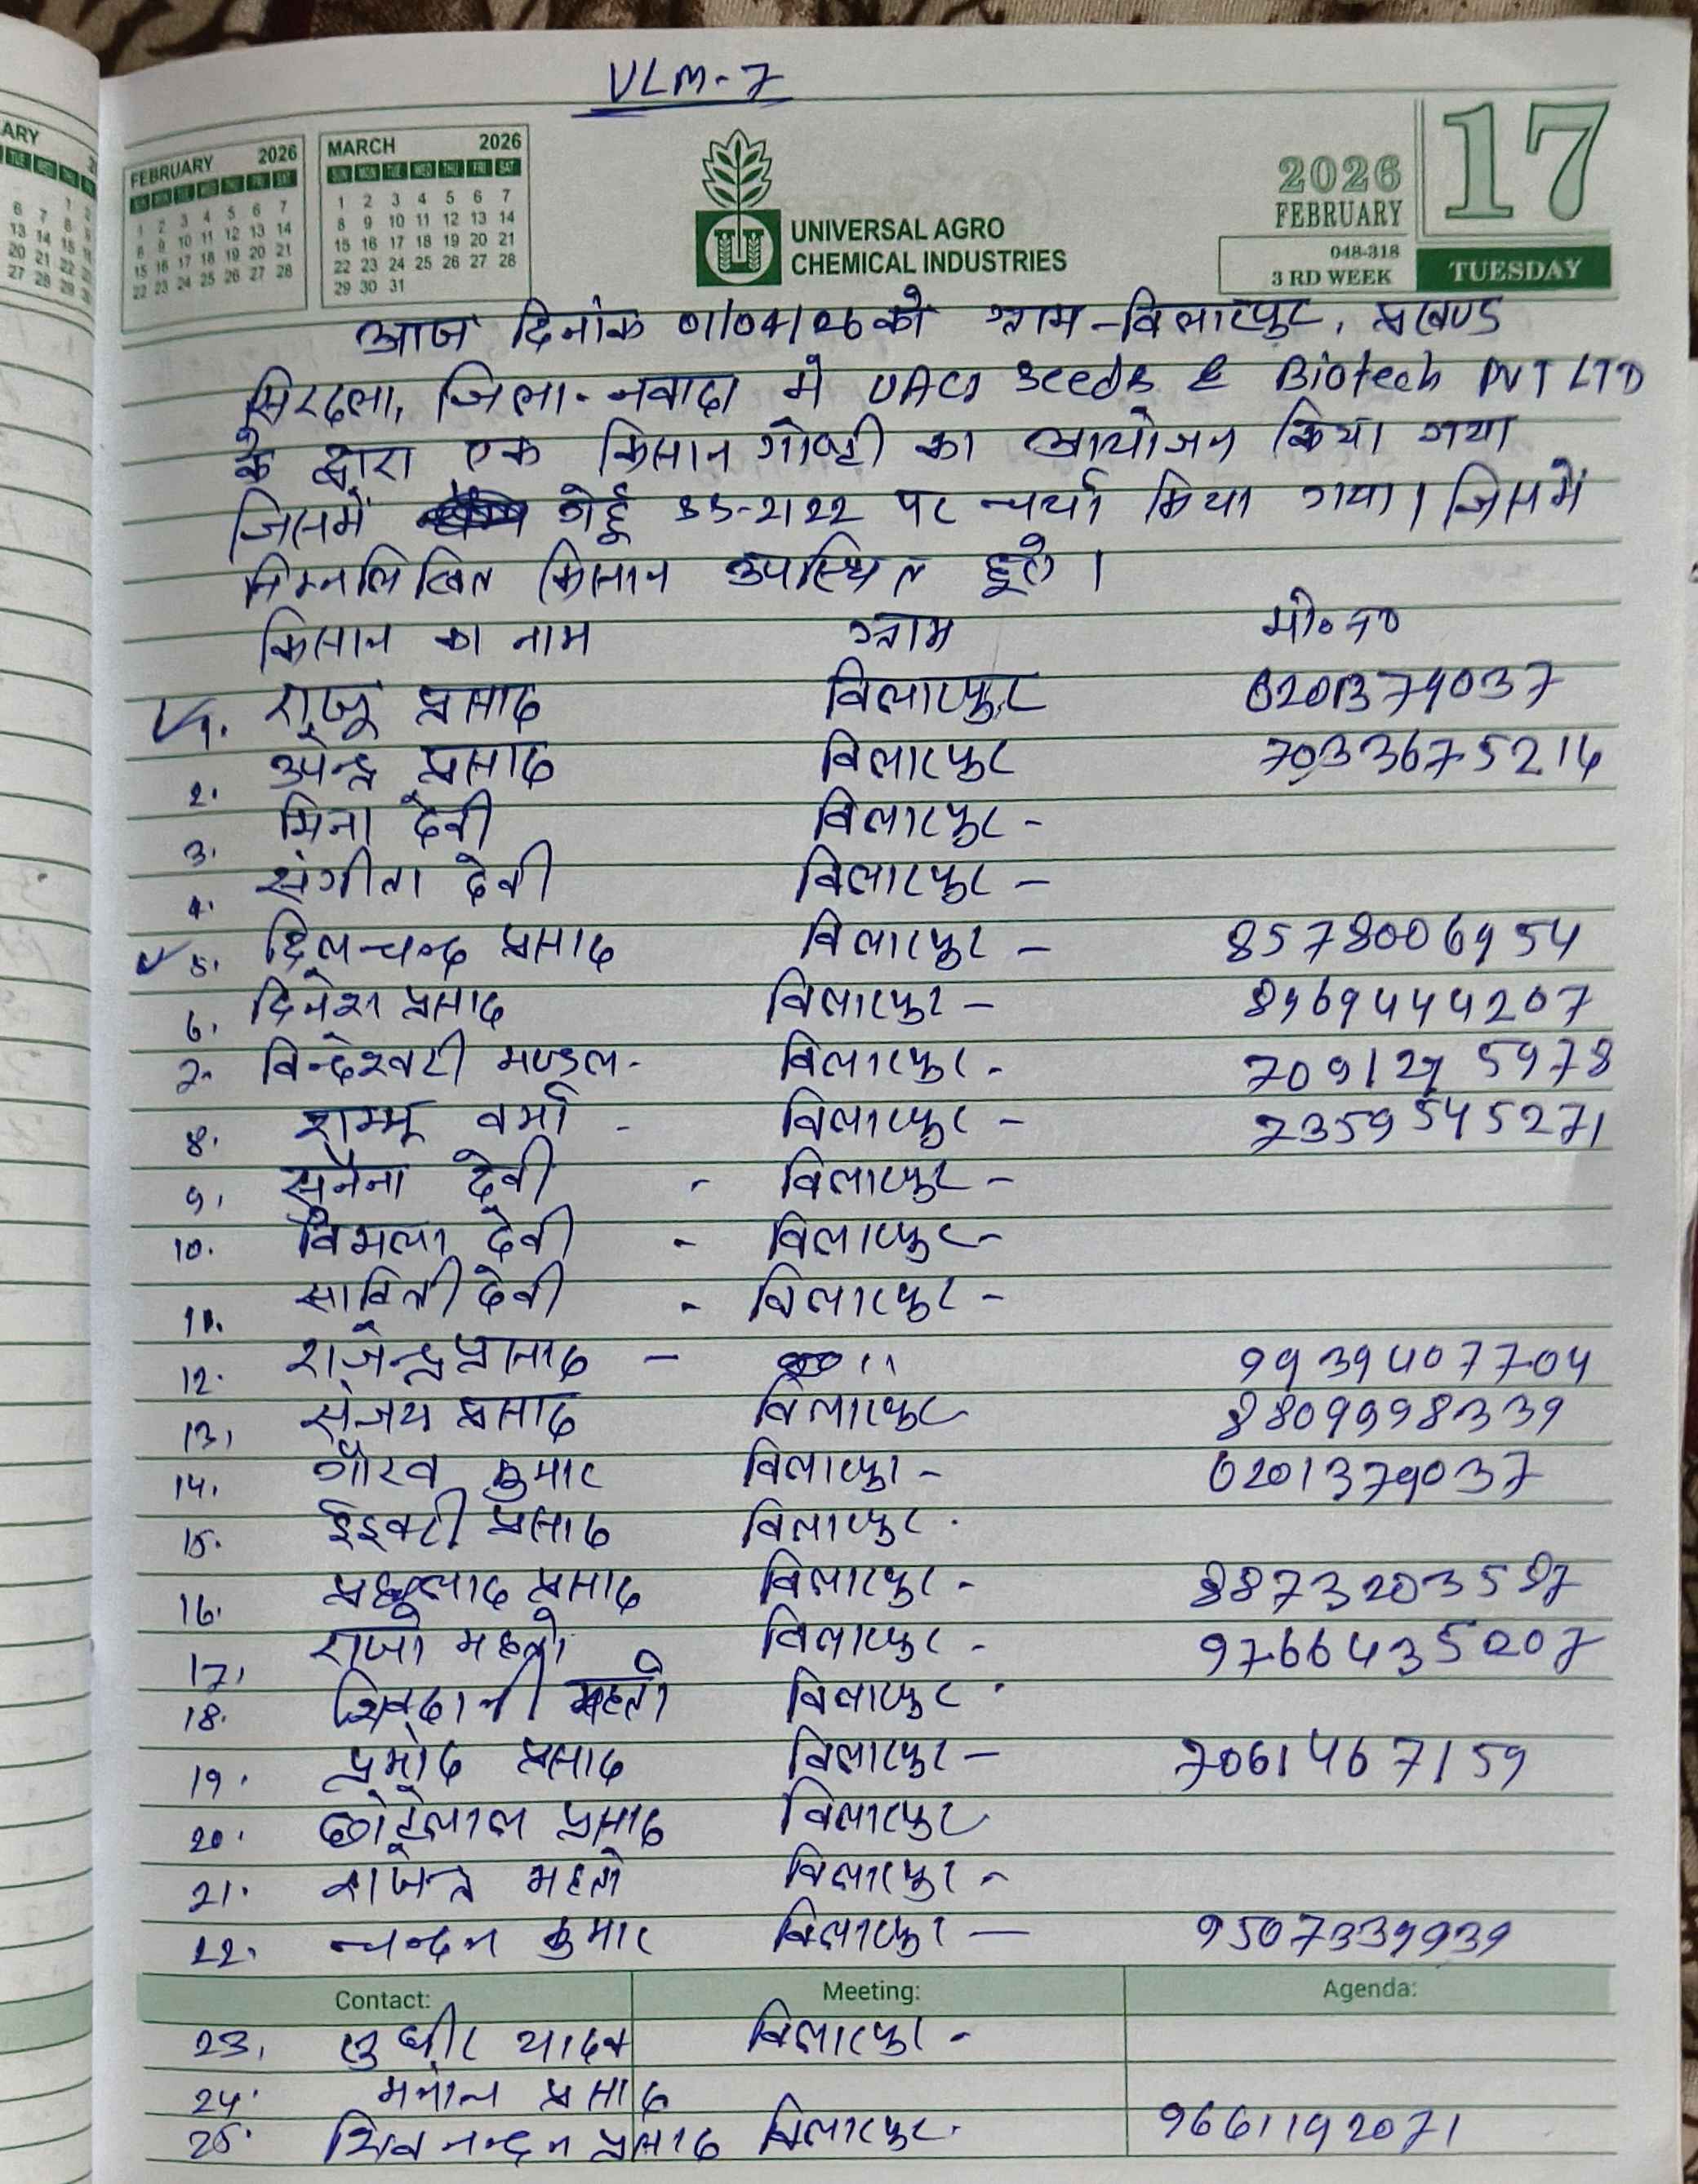 VLM-7
FEBRUARY 2026
MARCH 2026
SUN MON TUE WED THU FRI SAT
1 2 3 4 5 6 7
8 9 10 11 12 13 14
15 16 17 18 19 20 21
22 23 24 25 26 27 28
29 30 31
UNIVERSAL AGRO
CHEMICAL INDUSTRIES
2026
FEBRUARY
048-318
3 RD WEEK
17
TUESDAY
आज दिनांक 01/04/26 को ग्राम - विलारपुर, प्रखण्ड
सिरदला, जिला - नवादा मे UACI Seeds & Biotech PVT LTD
के द्वारा एक किसान गोष्ठी का आयोजन किया गया
जिसमें गेहूँ SS-2122 पर चर्चा किया गया। जिसमें
निम्नलिखित किसान उपस्थित हुए।
किसान का नाम ग्राम मो० न०
1. राजू प्रसाद विलारपुर 6201379037
2. उपेन्द्र प्रसाद विलारपुर 7033675214
3. मिना देवी विलारपुर -
4. संगीता देवी विलारपुर -
5. दिलचन्द प्रसाद विलारपुर -
6. दिनेश प्रसाद विलारपुर -
7. विन्देश्वरी मण्डल - विलारपुर -
8. शम्भू वर्मा - विलारपुर - 7359545271
9. सुनैना देवी - विलारपुर -
10. विमला देवी - विलारपुर -
11. सावित्री देवी - विलारपुर -
12. राजेन्द्र प्रसाद - 11 9939407704
13. संजय प्रसाद विलारपुर 8809998339
14. गौरव कुमार विलारपुर - 6201379037
15. प्रसाद विलारपुर -
16. प्रह्लाद प्रसाद विलारपुर - 8873203587
17. राजो महतो विलारपुर - 9766435207
18. शिवदानी महतो विलारपुर -
19. प्रमोद प्रसाद विलारपुर - 7061467159
20. छोटेलाल प्रसाद विलारपुर
21. राजेन्द्र महतो विलारपुर -
22. चन्दन कुमार विलारपुर - 9507339939
Contact: Meeting: Agenda:
23. सुधीर यादव विलारपुर -
24. मनोज प्रसाद
25. शिव नन्दन प्रसाद विलारपुर - 9661192071